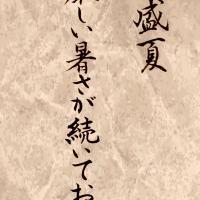 盛夏
しい暑さが続いてお